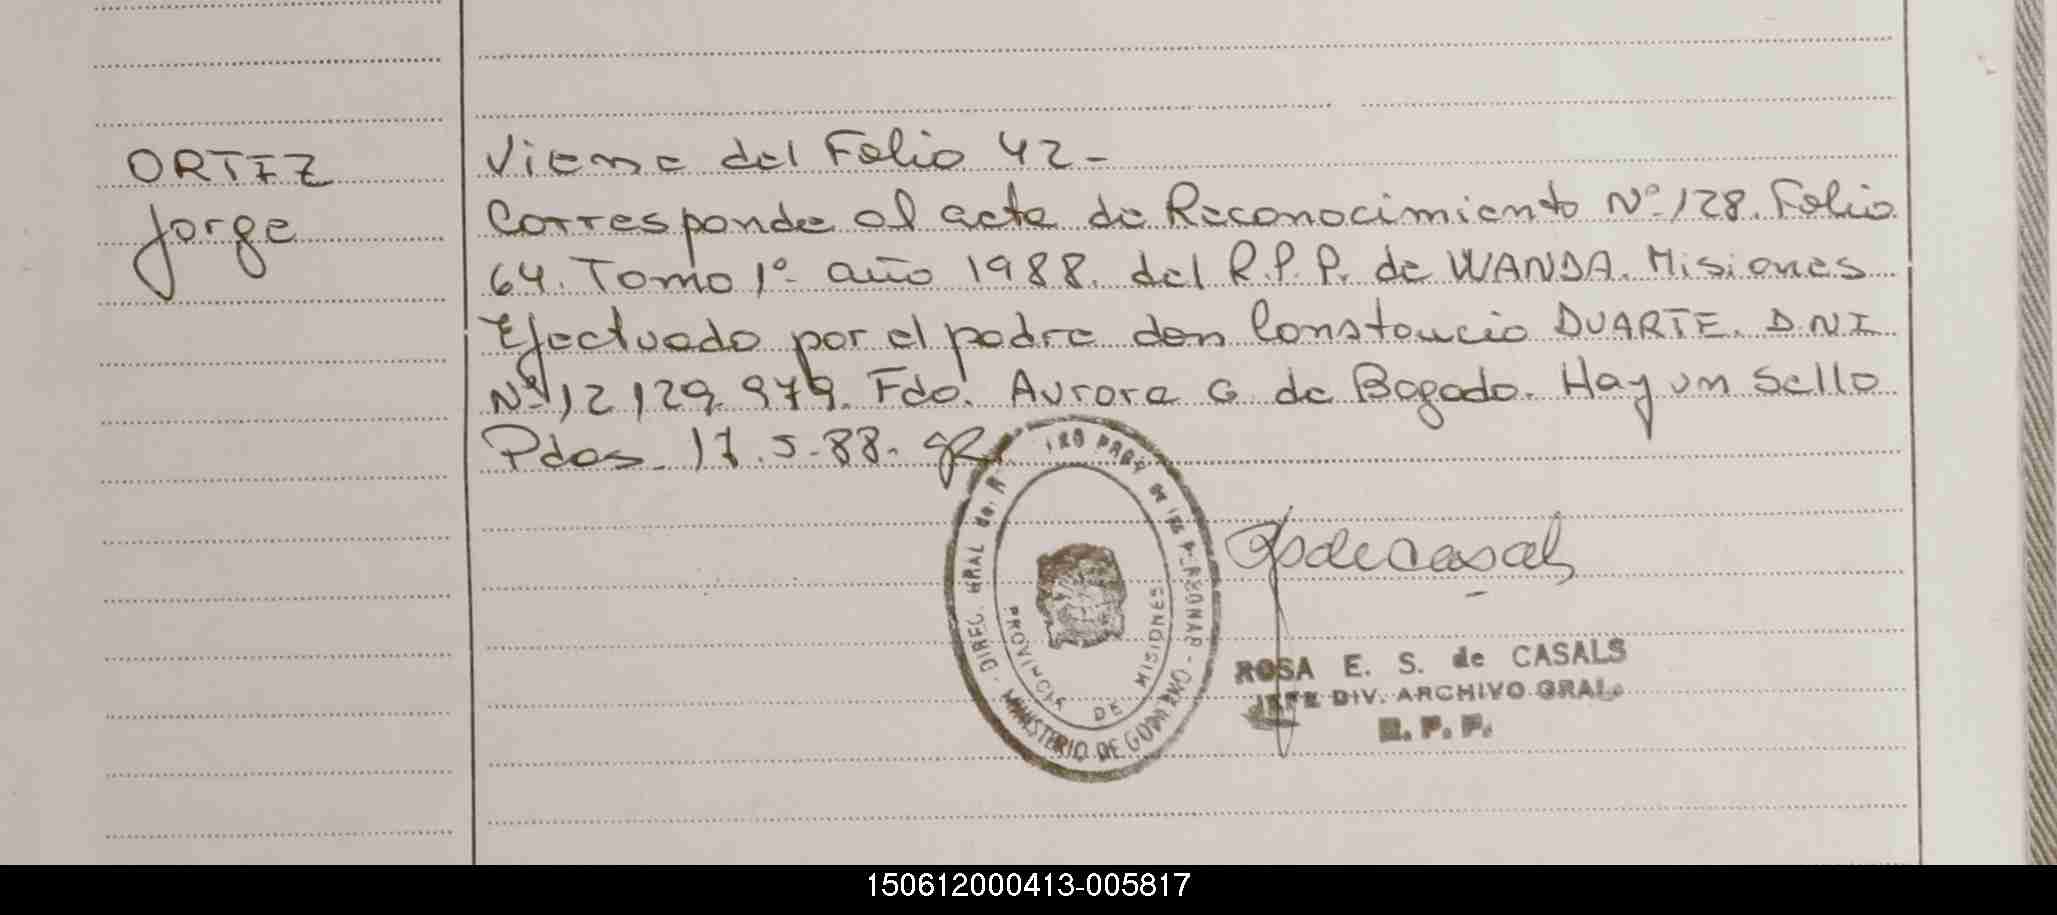 ORTIZ
Jorge
Viene del Folio 42-
Corresponde al acta de Reconocimiento Nº 128. Folio
64. Tomo 1º. año 1988. del R.P.P. de WANDA. Misiones
Efectuado por el padre don Constancio DUARTE. D.N.I
Nº 12.129.979. Fdo. Aurora G de Bogado. Hay un Sello
Pdas. 17.5.88.
DIREC. GRAL de.
PERSONAS - MINISTERIO DE GOBIERNO
PROVINCIA DE MISIONES
ROSA E. S. de CASALS
JEFE DIV. ARCHIVO GRAL.
R. P. P.
150612000413-005817